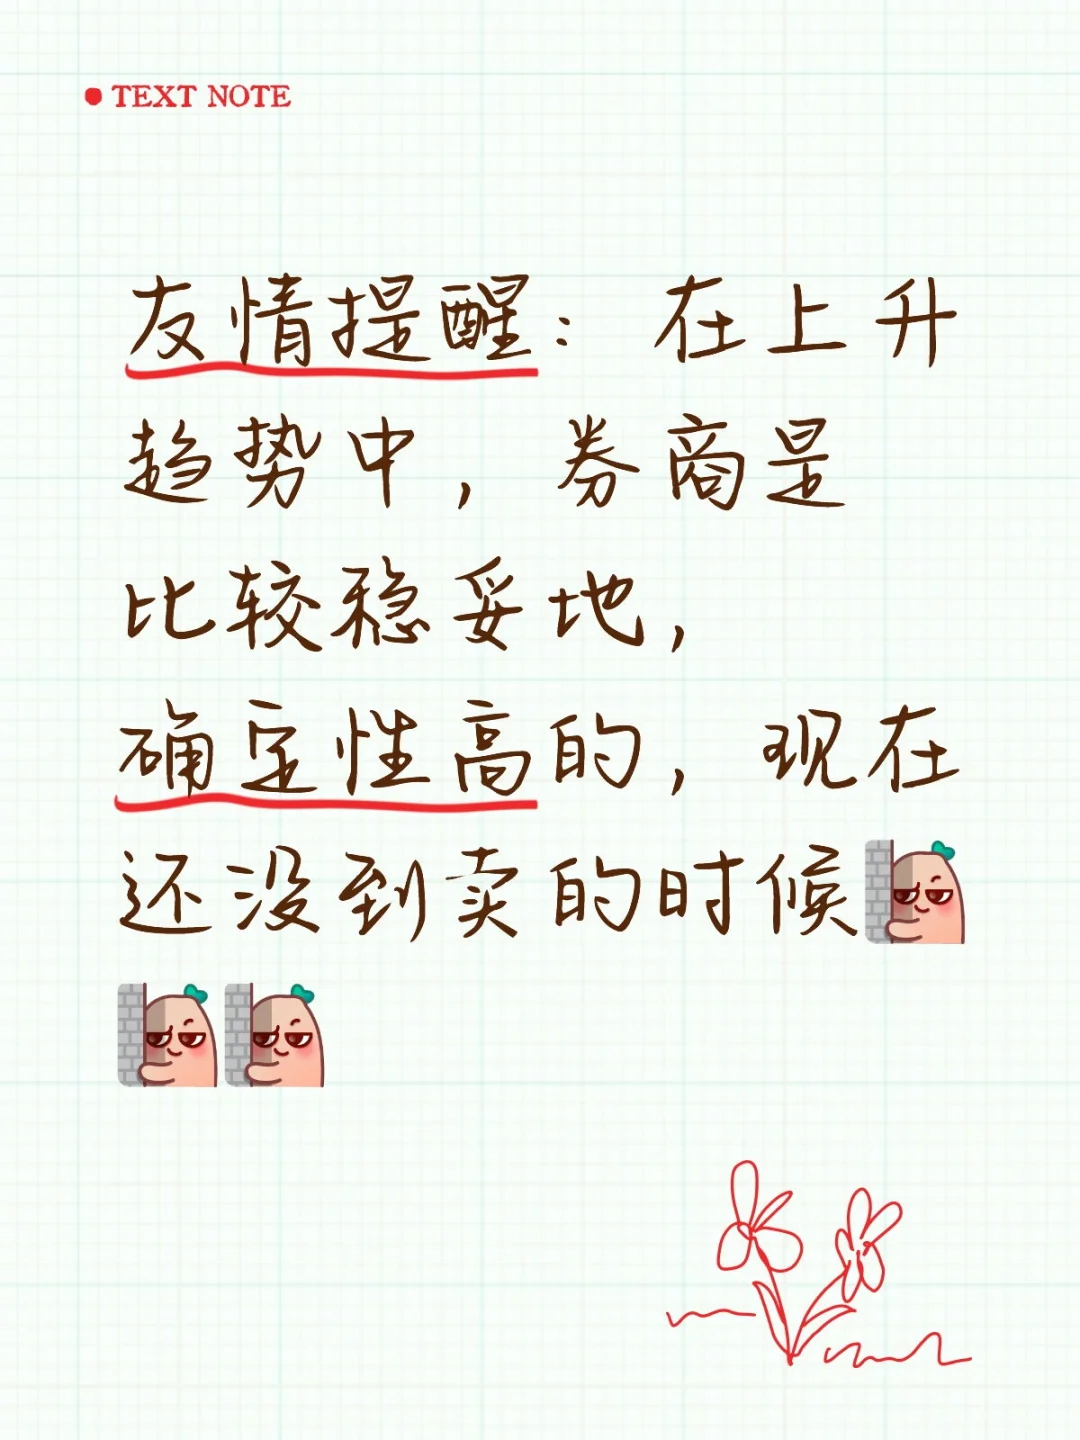 TEXT NOTE
友情提醒：在上升
趋势中，券商是
比较稳妥地，
确定性高的，现在
还没到卖的时候